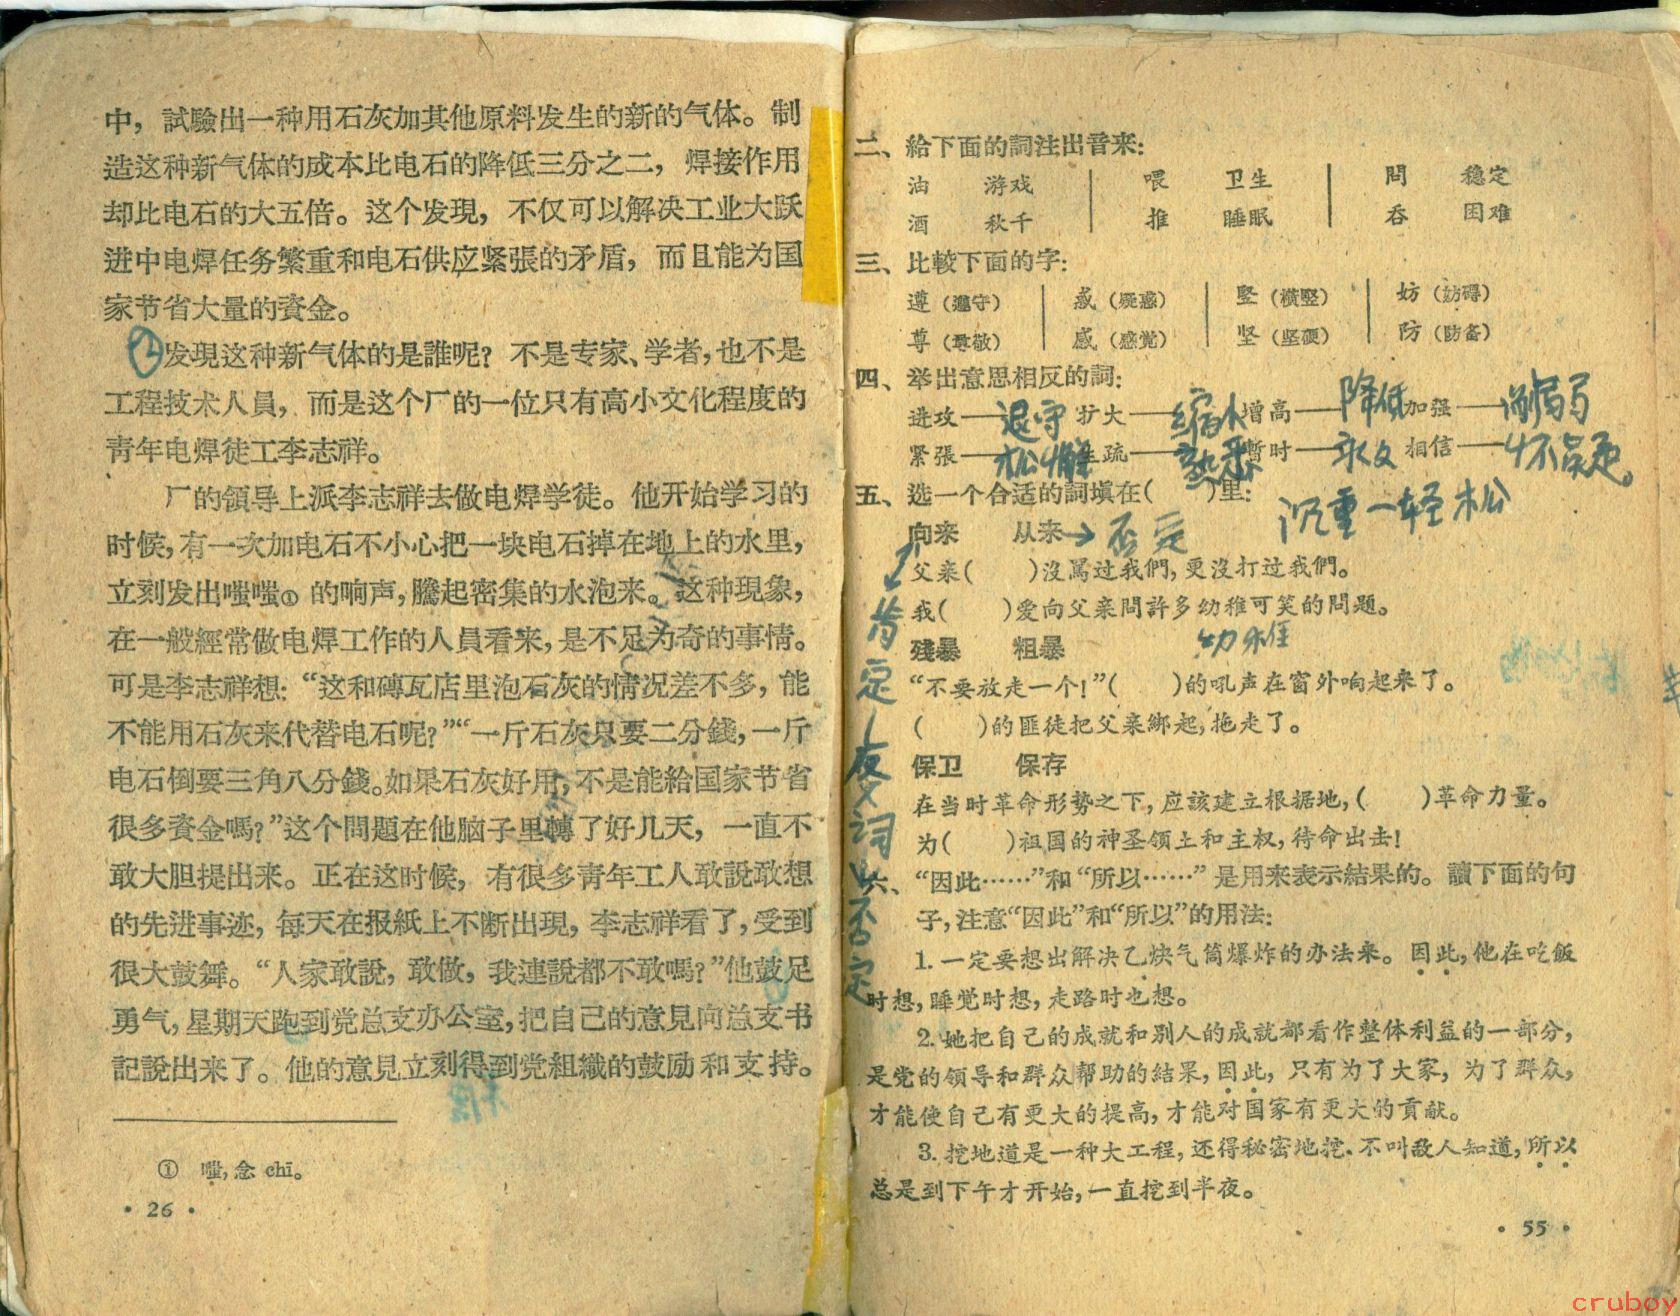 中，試驗出一种用石灰加其他原料发生的新的气体。制
造这种新气体的成本比电石的降低三分之二，焊接作用
却比电石的大五倍。这个发現，不仅可以解决工业大跃
进中电焊任务繁重和电石供应紧張的矛盾，而且能为国
家节省大量的資金。
发現这种新气体的是誰呢？不是专家、学者，也不是
工程技术人員，而是这个厂的一位只有高小文化程度的
青年电焊徒工李志祥。
厂的領导上派李志祥去做电焊学徒。他开始学习的
时候，有一次加电石不小心把一块电石掉在地上的水里，
立刻发出嗤嗤①的响声，騰起密集的水泡来。这种現象，
在一般經常做电焊工作的人員看来，是不足为奇的事情。
可是李志祥想：“这和磚瓦店里泡石灰的情况差不多，能
不能用石灰来代替电石呢？”“一斤石灰只要二分錢，一斤
电石倒要三角八分錢。如果石灰好用，不是能給国家节省
很多資金嗎？”这个問題在他脑子里轉了好几天，一直不
敢大胆提出来。正在这时候，有很多青年工人敢說敢想
的先进事迹，每天在报紙上不断出現，李志祥看了，受到
很大鼓舞。“人家敢說，敢做，我連說都不敢嗎？”他鼓足
勇气，星期天跑到党总支办公室，把自己的意見向总支书
記說出来了。他的意見立刻得到党組織的鼓励和支持。
① 嗤，念 chī。
· 26 ·
二、給下面的詞注出音来：
油 游戏 喂 卫生 問 稳定
酒 秋千 推 睡眠 吞 困难
三、比較下面的字：
遵（遵守） 惑（疑惑） 竪（横竪） 妨（妨碍）
尊（尊敬） 感（感觉） 坚（坚硬） 防（防备）
四、举出意思相反的詞：
进攻——退守 扩大——缩小 增高——降低 加强——削弱
紧張——松懈 生疏——熟悉 暫时——永久 相信——怀疑。
沉重—轻松
五、选一个合适的詞填在（ ）里：
向来 从来→否定
父亲（ ）沒罵过我們，更沒打过我們。
我（ ）爱向父亲問許多幼稚可笑的問題。
幼稚
残暴 粗暴
“不要放走一个！”（ ）的吼声在窗外响起来了。
（ ）的匪徒把父亲綁起，拖走了。
保卫 保存
在当时革命形势之下，应該建立根据地，（ ）革命力量。
为（ ）祖国的神圣領土和主权，待命出击！
肯定 反义词 否定
六、“因此……”和“所以……”是用来表示結果的。讀下面的句
子，注意“因此”和“所以”的用法：
1. 一定要想出解决乙炔气筒爆炸的办法来。因此，他在吃飯
时想，睡觉时想，走路时也想。
2. 她把自己的成就和別人的成就都看作整体利益的一部分，
是党的領导和群众帮助的結果，因此，只有为了大家，为了群众，
才能使自己有更大的提高，才能对国家有更大的貢献。
3. 挖地道是一种大工程，还得秘密地挖．不叫敌人知道，所以
总是到下午才开始，一直挖到半夜。
· 55 ·
cruboy